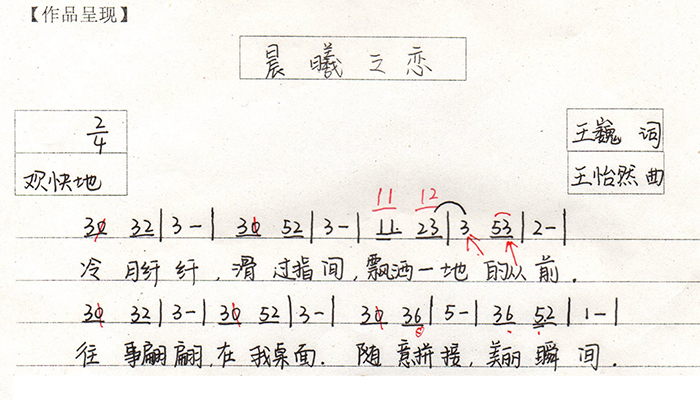 【作品呈现】
晨曦之恋
2/4
王巍 词
欢快地
王怡然 曲
11 12
30 32|3-|30 52|3-|11. 23|3 53|2-|
冷月纤纤，滑过指间，飘洒一地的从前.
30 32|3-|30 52|3-|30 36|5-|36 52|1-|
往事翩翩,在我桌面. 随意拼接,美丽瞬间.